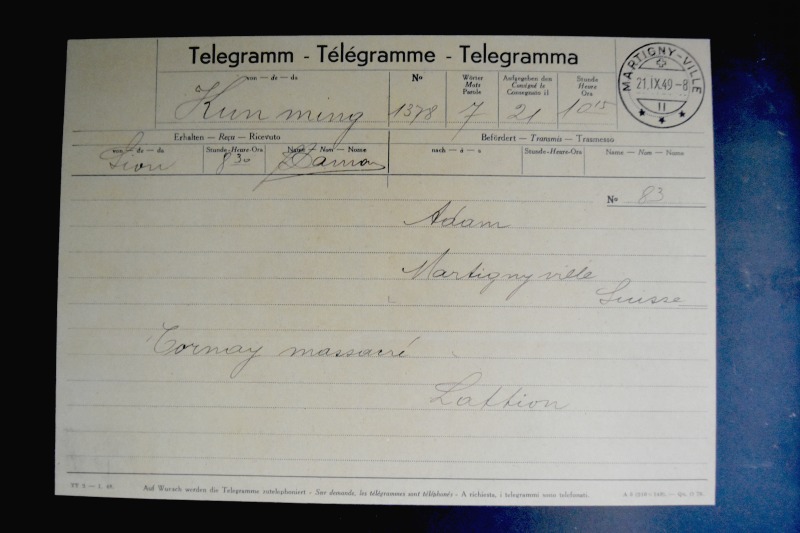 Telegramm - Télégramme - Telegramma
von — de — da
Kun ming
No
1378
Wörter
Mots
Parole
7
Aufgegeben den
Consigné le
Consegnato il
21
Stunde
Heure
Ora
10 15
MARTIGNY-VILLE
21.IX.49-8
11
Erhalten — Reçu — Ricevuto
Befördert — Transmis — Trasmesso
von - de - da
Sion
Stunde-Heure-Ora
8 30
Name - Nom - Nome
nach - à - a
Stunde-Heure-Ora
Name — Nom — Nome
No 83
Adam
Martignyville
Suisse
Tornay massacré
Lattion
Auf Wunsch werden die Telegramme zutelephoniert - Sur demande, les télégrammes sont téléphonés - A richiesta, i telegrammi sono telefonati.